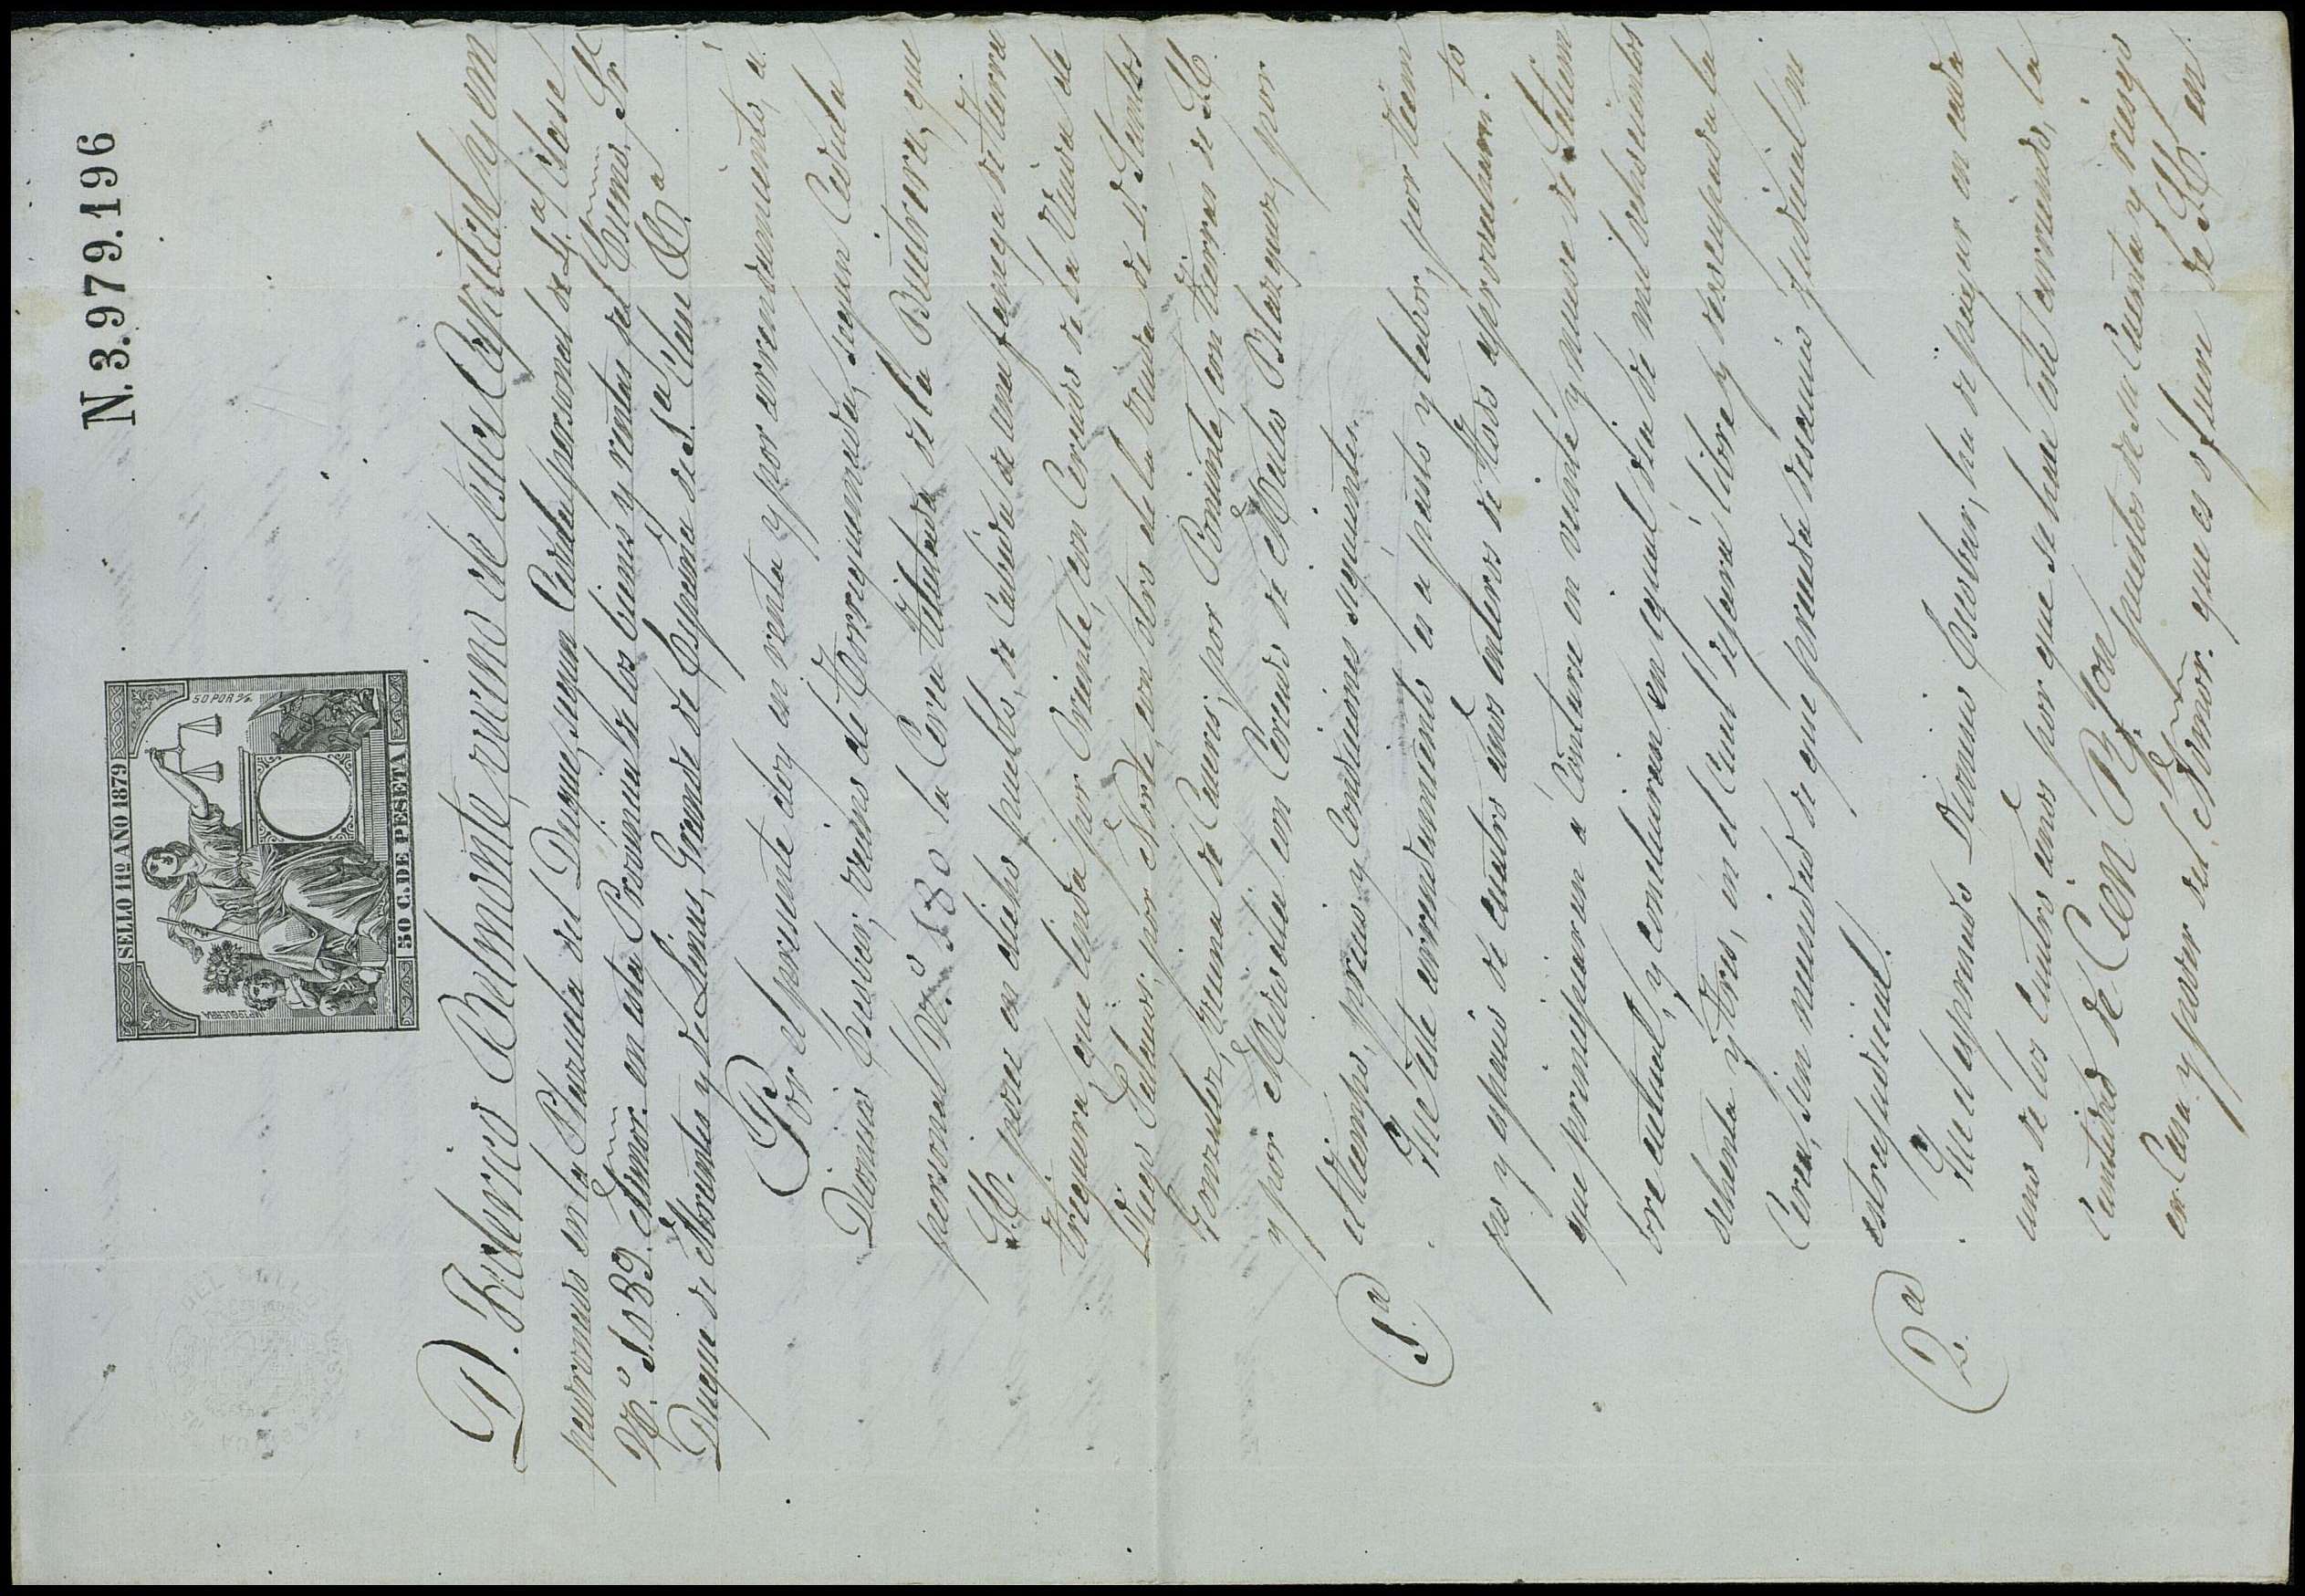 N. 3.979.196
SELLO 11º AÑO 1879
50 POR %
50 C. DE PESETA
D. Federico Belmonte, vecino de esta Capital y em
padronado en la Plazuela del Duque, segun Cedula personal de 4.ª Clase
N.º 1.039. Admor. en esta Provincia de los bienes y rentas del Excmo. Sr.
Duque de Abrantes y de Linares, Grande de España de 1.ª Clase &.ª
Por el presente doy en renta y por arrendamiento, á
Dionisio vecino de Torrequemada, segun Cedula
personal N.º 180 la Cerca titulada de la Buitrera, que
S. E. posee en dicho pueblo, de Cabida de una fanega de tierra
que linda por Oriente, con Cercado de la Viuda de
Diego por Norte, con otro de la Viuda de D. Santos
Gonzalez, vecina de Caceres; por Poniente, con tierras de S. E.
y por Mediodia con Cercado de Matias Blazquez, por
el tiempo, precio, y Condiciones siguientes.
1.ª
Que este arrendamiento es a pasto y labor, por tiem
po y espacio de cuatro años enteros de todo aprovecham.to
que principiaran a Contarse en veinte y nueve de Setiem
bre actual, y concluiran en igual dia de mil ochocientos
ochenta y tres, en el cual dejará libre y desocupada la
Cerca, sin necesidad de que preceda desaucio judicial ni
extrajudicial.
2.ª
Que el espresado Dionisio ha de pagar en cada
uno de los Cuatro años por que se hace este arriendo, la
Cantidad de Cien R.s von puestos de su Cuenta y riesgo
en Casa y poder del Admor. que es ó fuere de S. E. en